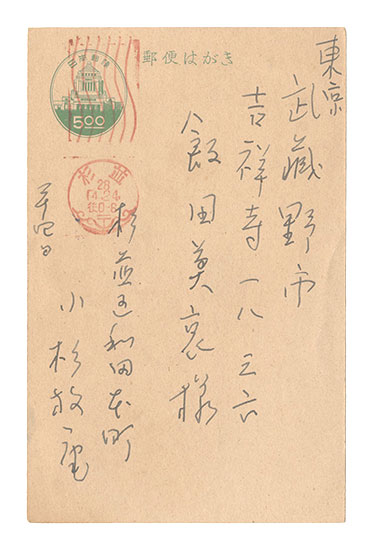 郵便はがき
日本郵便
5.00
杉並
28
4.24
東京
武蔵野市
吉祥寺一八三六
飯田莫哀様
杉並区和田本町
小杉放庵